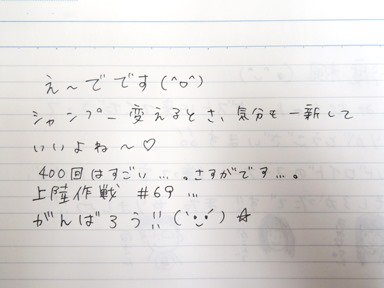 え〜でです(^o^)
シャンプー変えるとさ、気分も一新して
いいよね〜♡
400回はすごい…。さすがです…。
上陸作戦 #69 …
がんばろう!!(•̀ᴗ•́)☆